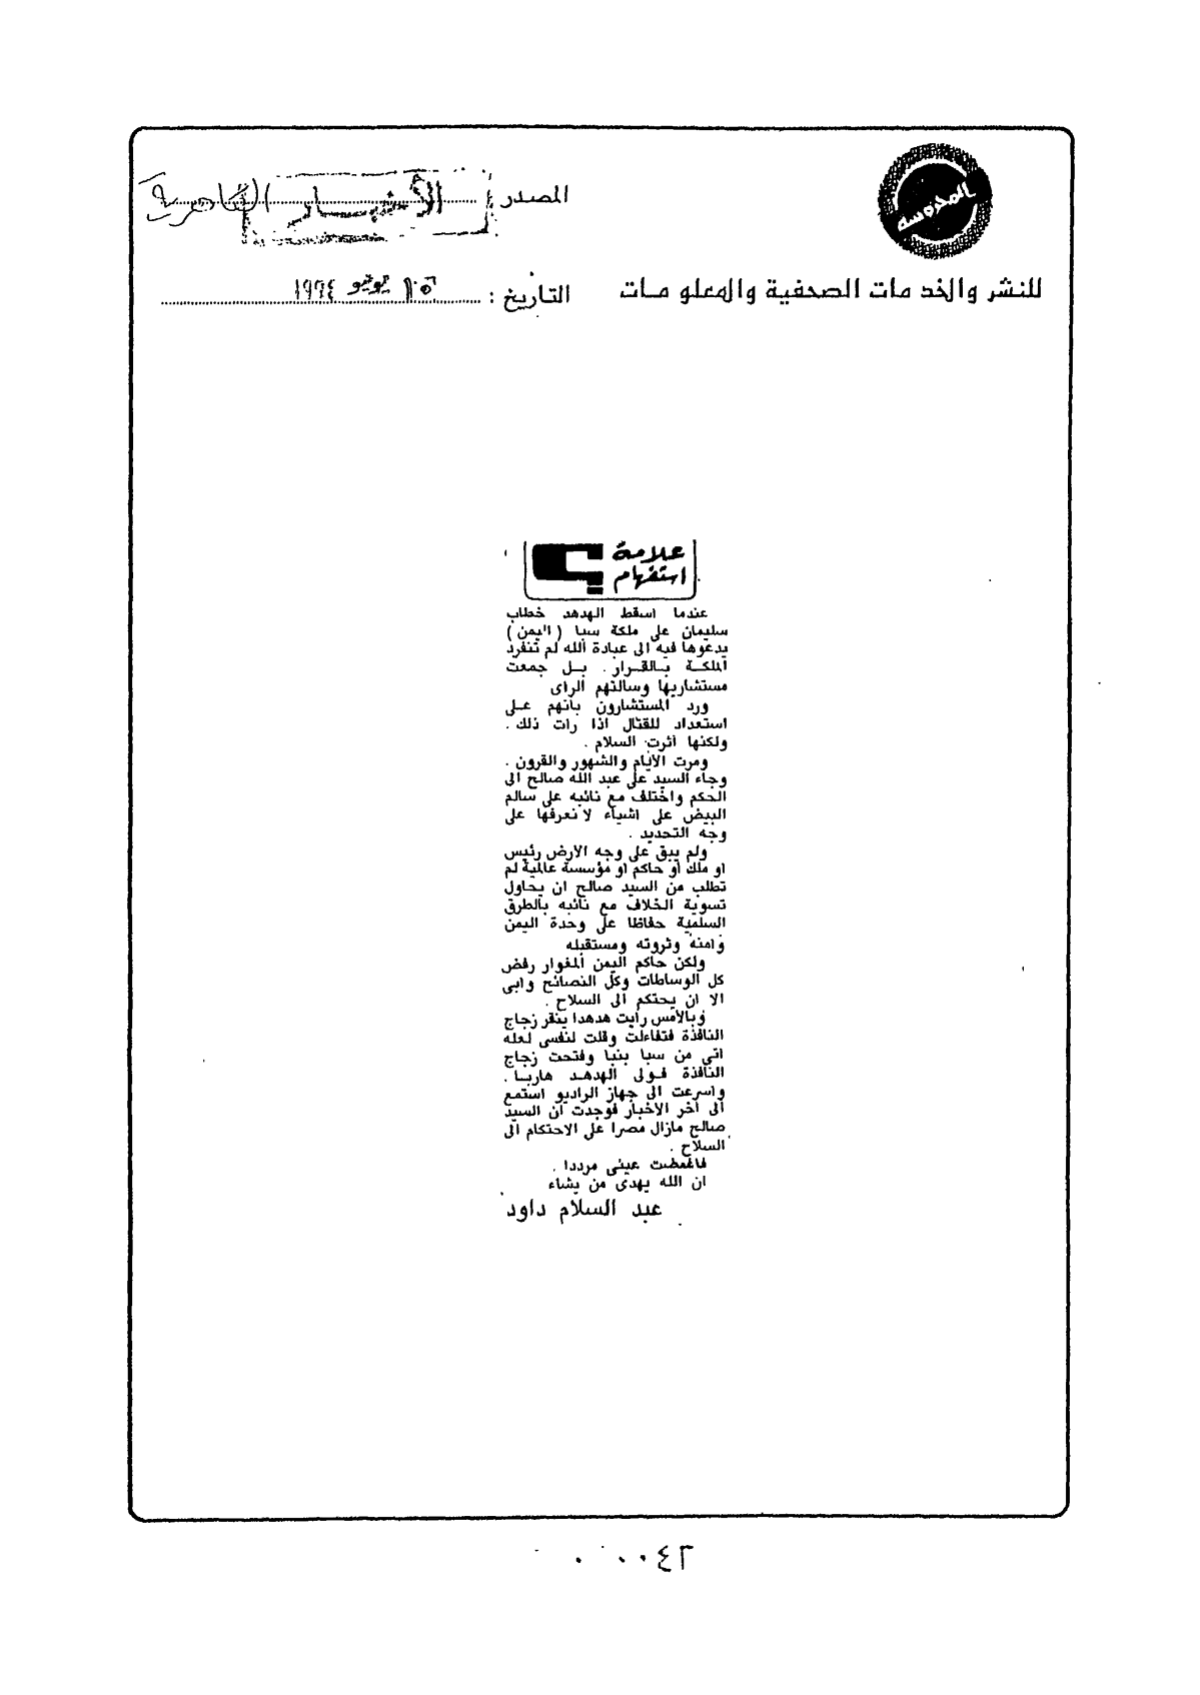 المدوسه
المصدر : الأخبـــار القاهرية
للنشر والخدمات الصحفية والمعلومات
التاريخ : ١٥ يونيو ١٩٩٤
علامة
استفهام
عندما اسقط الهدهد خطاب
سليمان على ملكة سبا (اليمن)
يدعوها فيه الى عبادة الله لم تنفرد
الملكـة بـالقـرار . بـل جمعت
مستشاريها وسالتهم الراى
ورد المستشارون بانهم على
استعداد للقتال اذا رات ذلك .
ولكنها آثرت السلام .
ومرت الأيام والشهور والقرون .
وجاء السيد على عبد الله صالح الى
الحكم واختلف مع نائبه على سالم
البيض على اشياء لا نعرفها على
وجه التحديد .
ولم يبق على وجه الارض رئيس
او ملك او حاكم او مؤسسة عالمية لم
تطلب من السيد صالح ان يحاول
تسوية الخلاف مع نائبه بالطرق
السلمية حفاظا على وحدة اليمن
وامنه وثروته ومستقبله
ولكن حاكم اليمن المغوار رفض
كل الوساطات وكل النصائح وابى
الا ان يحتكم الى السلاح .
وبالأمس رايت هدهدا ينقر زجاج
النافذة فتفاءلت وقلت لنفسى لعله
اتى من سبا بنبا وفتحت زجاج
النافذة فـولى الهدهـد هاربـا .
واسرعت الى جهاز الراديو استمع
الى آخر الاخبار فوجدت ان السيد
صالح مازال مصرا على الاحتكام الى
السلاح .
فاغمضت عينى مرددا .
ان الله يهدى من يشاء
عبد السلام داود
٠٠٠٤٢